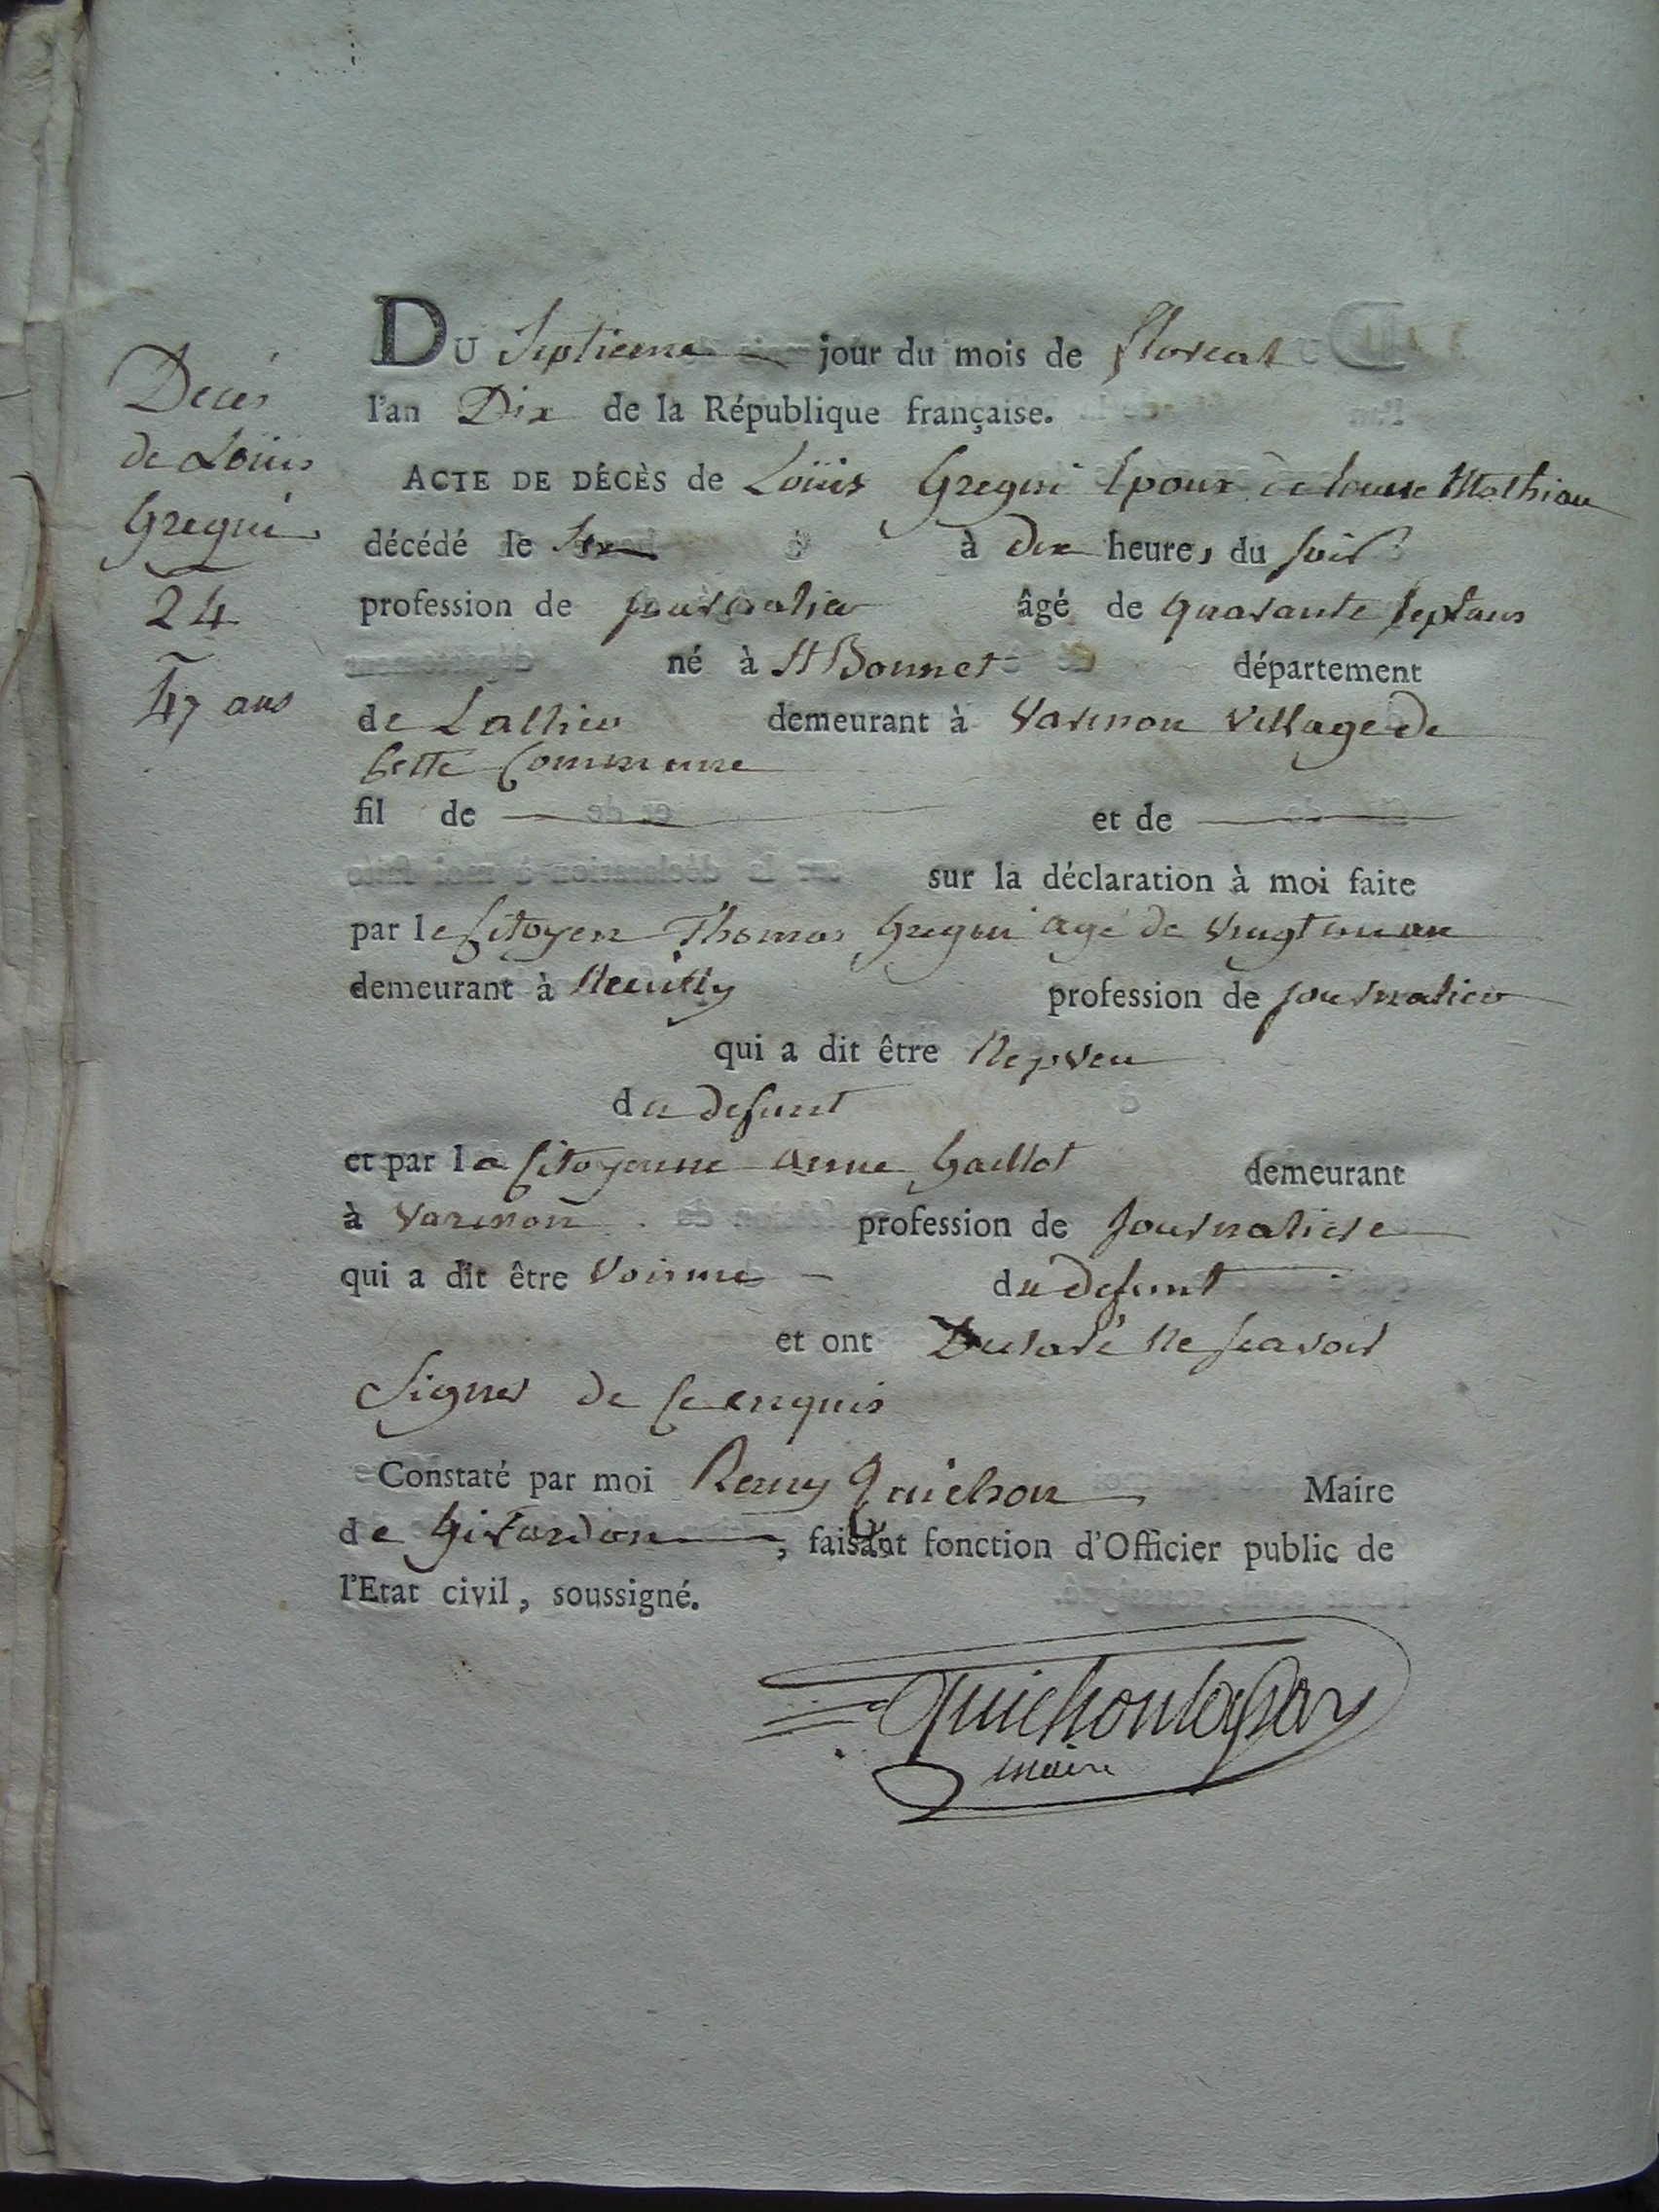 Deces
de Loüis
Gregui
24
47 ans
DU Septieme jour du mois de floreal
l'an Dix de la République française.
ACTE DE DÉCÈS de Loüis Gregui Epoux de louise Mathiau
décédé le Six à dix heures du soir
profession de journalier âgé de quarante sept ans
né à St Bonnet département
de Lallier demeurant à Varenon village de
Cette Commune
fil de et de
sur la déclaration à moi faite
par le Citoyen Thomas Gregui agé de vingt un an
demeurant à Neuilly profession de journalier
qui a dit être Nepveu
du defunt
et par la Citoyenne anne Gaillot demeurant
à Varenon profession de journaliere
qui a dit être Voisine du defunt
et ont Declaré Ne scavoir
Signer de Ce enquis
Constaté par moi Remy Quichon Maire
de Givardon, faisant fonction d'Officier public de
l'Etat civil, soussigné.
maire